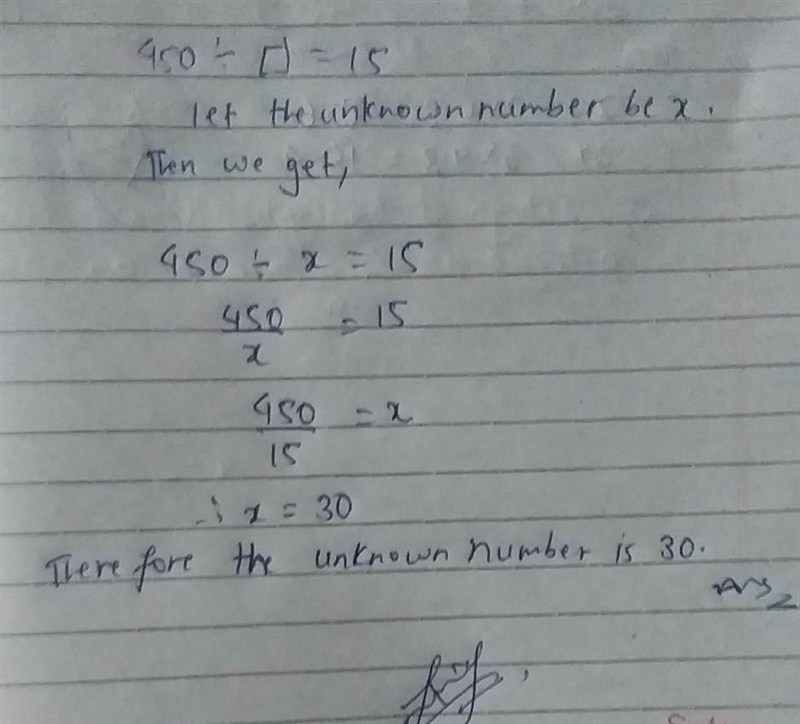 450 ÷ □ = 15
let the unknown number be x.
Then we get,
450 ÷ x = 15
450/x = 15
450/15 = x
∴ x = 30
There fore the unknown number is 30.
Ans